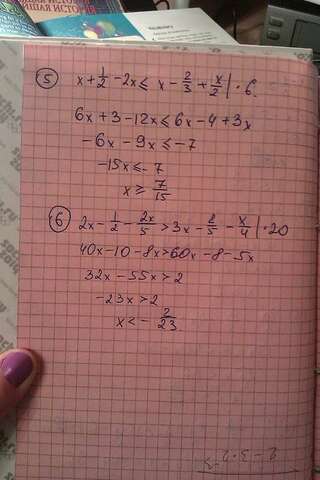 ШАЯ ИСТОРИЯ
⑤ x + 1/2 - 2x ≤ x - 2/3 + x/2 | · 6
6x + 3 - 12x ≤ 6x - 4 + 3x
-6x - 9x ≤ -7
-15x ≤ -7
x ≥ 7/15
⑥ 2x - 1/2 - 2x/5 > 3x - 2/5 - x/4 | · 20
40x - 10 - 8x > 60x - 8 - 5x
32x - 55x > 2
-23x > 2
x < - 2/23